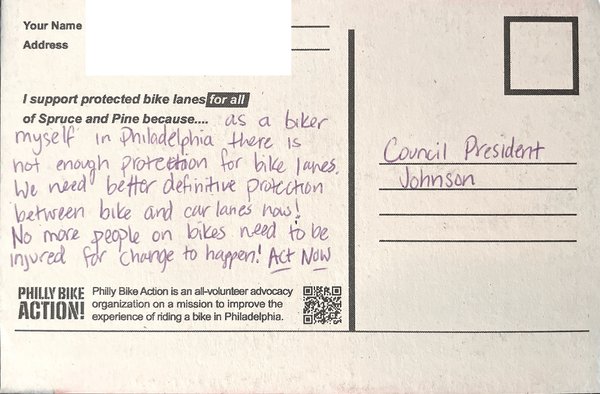 Your Name
Address
I support protected bike lanes for all
of Spruce and Pine because.... as a biker
myself in Philadelphia there is
not enough protection for bike lanes.
We need better definitive protection
between bike and car lanes now!
No more people on bikes need to be
injured for change to happen! Act Now
PHILLY BIKE
ACTION!
Philly Bike Action is an all-volunteer advocacy
organization on a mission to improve the
experience of riding a bike in Philadelphia.
Council President
Johnson